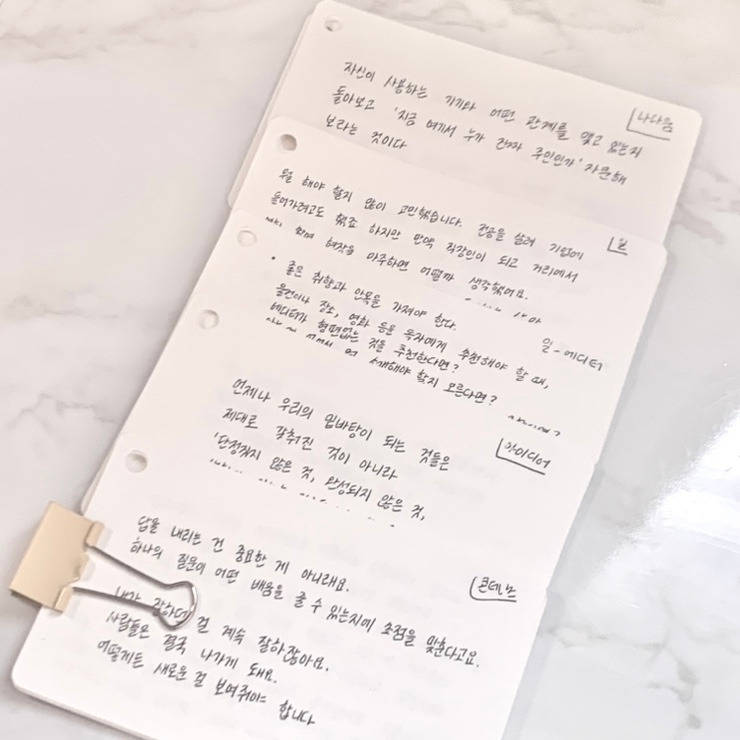 자신이 사용하는 기기와 어떤 관계를 맺고 있는지
나다움
돌아보고 '지금 여기서 누가 진짜 주인인가' 자문해
보라는 것이다
뭘 해야 할지 많이 고민했습니다. 전공을 살려 기업에
일
들어가려고도 했죠 하지만 만약 직장인이 되고 거리에서
마주하면 어떨까 생각했어요.
• 좋은 취향과 안목을 가져야 한다.
일-에디터
물건이나 장소, 영화 등을 독자에게 추천해야 할 때,
에디터가 형편없는 것을 추천한다면?
소개해야 할지 모른다면?
언제나 우리의 밑바탕이 되는 것들은
아이디어
제대로 갖춰진 것이 아니라
'단정짓지 않은 것, 완성되지 않은 것,
답을 내리는 건 중요한 게 아니래요.
콘텐츠
하나의 질문이 어떤 배움을 줄 수 있는지에 초점을 맞춘다고요.
내가 잘하던 걸 계속 잘하잖아요.
사람들은 결국 나가게 돼요.
어떻게든 새로운 걸 보여줘야 합니다